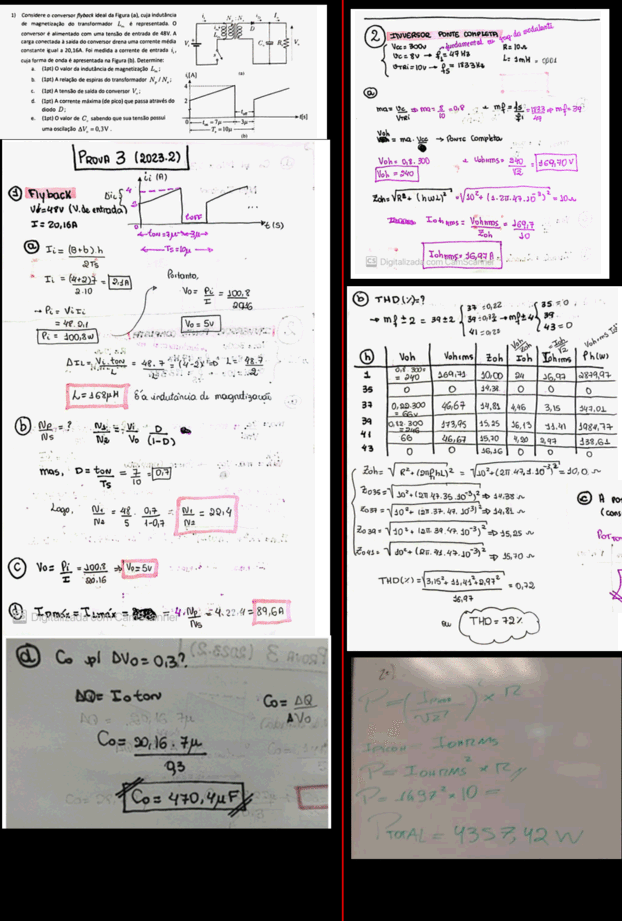 1) Considere o conversor flyback ideal da Figura (a), cuja indutância
de magnetização do transformador Lm é representada. O
conversor é alimentado com uma tensão de entrada de 48V. A
carga conectada à saída do conversor drena uma corrente média
constante igual a 20,16A. Foi medida a corrente de entrada ii,
cuja forma de onda é apresentada na Figura (b). Determine:
a. (1pt) O valor da indutância de magnetização Lm;
b. (1pt) A relação de espiras do transformador Np/Ns;
c. (1pt) A tensão de saída do conversor Vo;
d. (1pt) A corrente máxima (de pico) que passa através do
diodo D;
e. (1pt) O valor de Co sabendo que sua tensão possui
uma oscilação ΔVo = 0,3V.
(a)
ii[A]
4
2
0
t[s]
ton = 7μ
3μ
Ts = 10μ
(b)
PROVA 3 (2023.2)
① Flyback
Vi=48V (V. de entrada)
I = 20,16A
ii (A)
ΔiL
4
2
0
toff
t (s)
ton=7μ
3μ
Ts=10μ
ⓐ Ii = (B+b).h
2Ts
Ii = (4+2)7 = 2,1A
2.10
→ Pi = Vi Ii
= 48.2,1
Pi = 100,8W
Portanto,
Vo = Pi = 100,8
I 20,16
Vo = 5V
ΔIL = Vi.ton = 48.7 = (4-2) => L = 48.7
L L 2
L = 168μH é a indutância de magnetização
ⓑ Np = ? N1 = Vi D
Ns N2 Vo (1-D)
mas, D = ton = 7 = 0,7
Ts 10
Logo, N1 = 48 . 0,7 = N1 = 22,4
N2 5 1-0,7 N2
ⓒ Vo = Pi = 100,8 => Vo = 5V
I 20,16
ⓓ IDmáx = ILmáx = 4.Np = 4.22,4 = 89,6A
Ns
Digitalizado com CamScanner
ⓓ Co p/ ΔVo = 0,3?
ΔQ = Io ton
Co = ΔQ
ΔVo
Co = 20,16 . 7μ
0,3
Co = 470,4μF
② INVERSOR PONTE COMPLETA
Vcc = 300V
R = 10Ω
Vc = 8V → f1 = 47Hz
L = 1mH
VTRi = 10V → fs = 1833Hz
ⓐ
ma = Vc => ma = 8 = 0,8
VTRi 10
mf = fs = 1833 => mf = 39
f1 47
Voh = ma . Vcc → Ponte Completa
Voh = 0,8 . 300
Voh = 240
Vohrms = 240 = 169,70V
√2
Zoh = √R² + (hωL)² = √10² + (1.2π.47.10⁻³)² = 10Ω
Iohrms = Vohrms = 169,7
Zoh 10
Iohrms = 16,97A
Digitalizado com CamScanner
ⓑ THD(%) = ?
→ mf ± 2 = 39 ± 2
37 = 0,22
39
41 = 0,22
→ mf ± 4
35 = 0
39
43 = 0
ⓗ Voh Vohrms Zoh Ioh Iohrms Ph(W)
1 0,8.300 = 240 169,71 10,00 24 16,97 2879,97
35 0 0 14,38 0 0 0
37 0,22.300 = 66V 46,67 14,81 4,46 3,15 147,01
39 173,95 15,25 16,13 11,41 1984,77
41 66 46,67 15,70 4,20 2,97 138,61
43 0 0 16,16 0 0 0
Zoh = √R² + (2πf1hL)² = √10² + (2π.47.1.10⁻³)² = 10,0 Ω
Zo35 = √10² + (2π.47.35.10⁻³)² => 14,38 Ω
Zo37 = √10² + (2π.37.47.10⁻³)² => 14,81 Ω
Zo39 = √10² + (2π.39.47.10⁻³)² => 15,25 Ω
Zo41 = √10² + (2π.41.47.10⁻³)² => 15,70 Ω
ⓒ A PO
(cons
THD(%) = √3,15² + 11,41² + 2,97² = 0,72
16,97
ou THD = 72%
P = (Ipm / √2)² × R
= IohRMS
P = IohRMS² × R
P = 16,97² × 10 =
PTOTAL = 4357,42 W